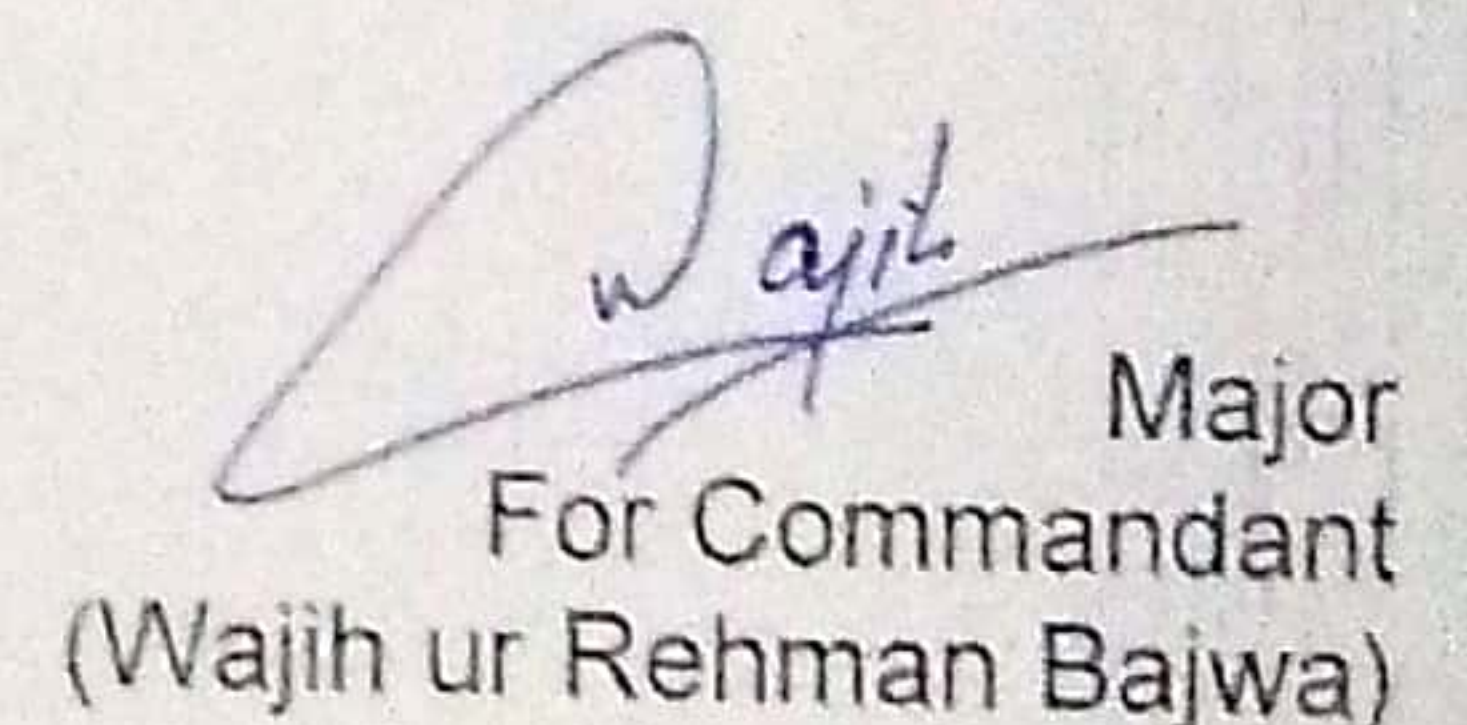 Wajih
Major
For Commandant
(Wajih ur Rehman Bajwa)